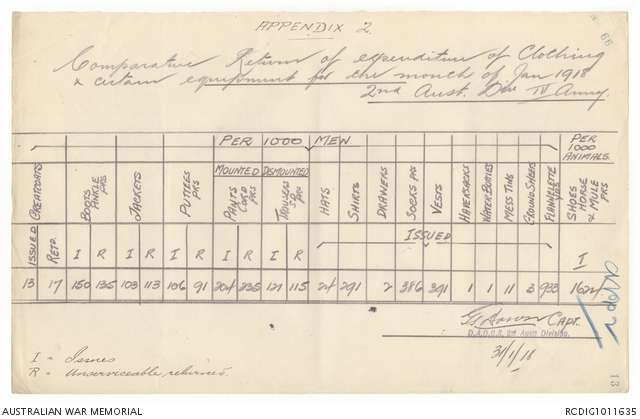 APPENDIX 2.
66
Comparative Return of expenditure of Clothing
& certain equipment for the month of Jan 1918
2nd Aust. Div IV Army.
PER 1000 MEN
PER 1000 ANIMALS.
GREATCOATS
BOOTS ANKLE PRS
JACKETS
PUTTEES PRS
MOUNTED
PANTS CORD PRS
DISMOUNTED
TROUSERS SD PRS
HATS
SHIRTS
DRAWERS
SOCKS PRS
VESTS
HAVERSACKS
WATER BOTTLES
MESS TINS
GROUND SHEETS
FLANNELETTE
SHOES HORSE & MULE PRS
ISSUED
ISSUED RETD. I R I R I R I R I R I
13 17 150 135 103 113 106 91 204 235 121 115 24 291 2 386 391 1 1 11 3 933 1624
Capt.
D.A.D.O.S. 2nd Austn Division.
31/1/18
I = Issues
R = Unserviceable, returned.
App 2
13
AUSTRALIAN WAR MEMORIAL
RCDIG1011635